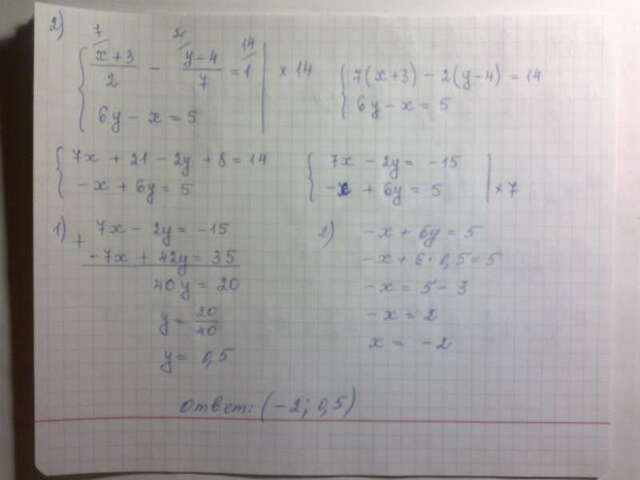 2)
7 2 14
x+3 / 2 - y-4 / 7 = 1 | × 14
6y - x = 5
7(x+3) - 2(y-4) = 14
6y - x = 5
7x + 21 - 2y + 8 = 14
-x + 6y = 5
7x - 2y = -15
-x + 6y = 5 | × 7
1) + 7x - 2y = -15
-7x + 42y = 35
40y = 20
y = 20/40
y = 0,5
2) -x + 6y = 5
-x + 6 · 0,5 = 5
-x = 5 - 3
-x = 2
x = -2
Ответ: (-2; 0,5)